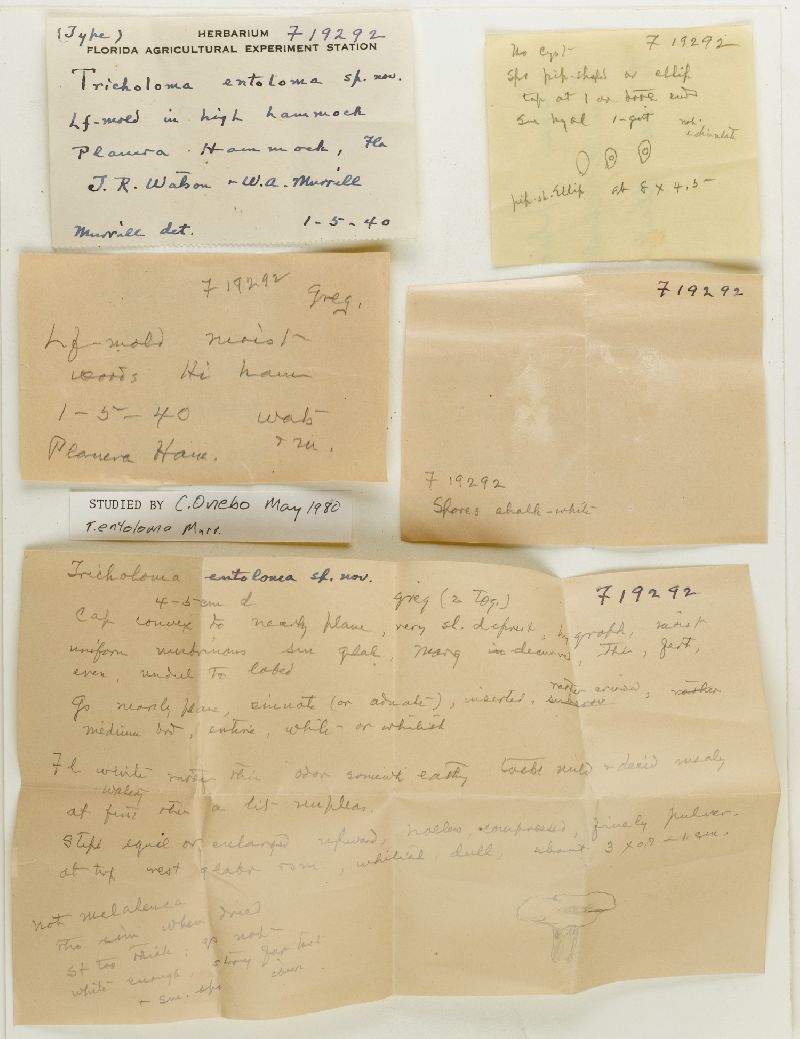 (Type) HERBARIUM F 19292
FLORIDA AGRICULTURAL EXPERIMENT STATION
Tricholoma entoloma sp. nov.
Lf-mold in high hammock
Planera Hammock, Fla
J. R. Watson + W. A. Murrill
Murrill det. 1-5-40
F 19292
No cyst
Spo pip-shape or ellip
tap at 1 or both end
Sm hyal 1-gut not
pip-sh. Ellip ab 8 x 4.5
F 19292 Greg.
Lf-mold moist
woods Hi ham
1-5-40 Wats
+ M.
Planera Ham.
F 19292
F 19292
Spores chalk-white
STUDIED BY C. Ovrebo May 1980
T. entoloma Murr.
Tricholoma entoloma sp. nov.
4-5 cm d greg (2 tog.) F 19292
Cap convex to nearly plane, very sl. depres, hygroph, moist
uniform murinous sm glab, marg decurved, thin, fert,
even, undul to lobed
Gs nearly plane, sinuate (or adnate), inserted, rather crowded, rather
medium brd, entire, white or whitish
Fl white rather thin odor somewh earthy taste mild + decid mealy
watery
at first then a bit unpleas.
Stipe equal or enlarged upward, hollow, compressed, finely pulver.
at top rest glabr, whitish, dull, about 3 x 0.7-1 cm.
not melaleuca
tho sim when dried
St too thick; gs not
white enough, strong far too
+ sm. spo